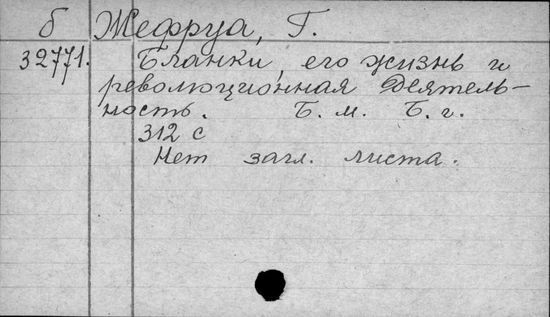 б Жефруа, Г.
32771. Бланки, его жизнь и
революционная деятель-
ность. Б. м. Б. г.
312 с
Нет загл. листа.